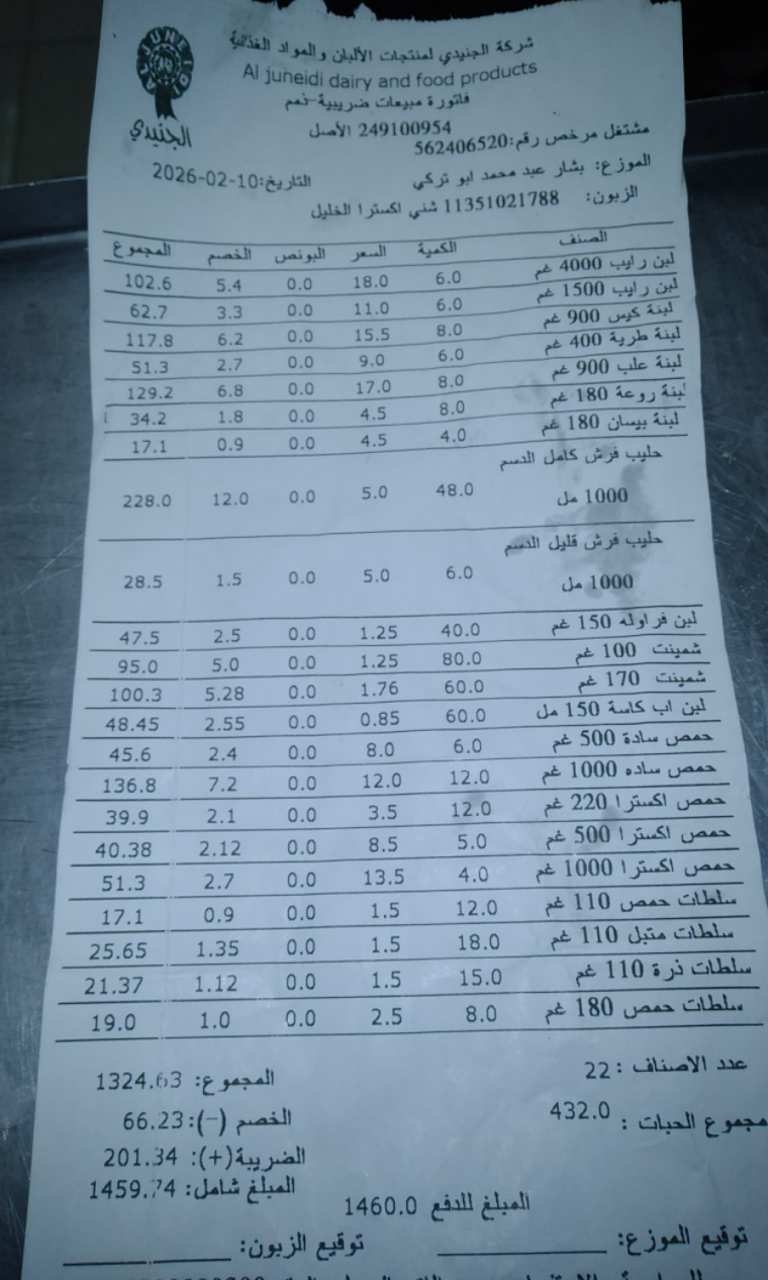 JUNEIDI
الجنيدي
شركة الجنيدي لمنتجات الألبان والمواد الغذائية
Al juneidi dairy and food products
فاتورة مبيعات ضريبية-ذمم
249100954 الأصل
مشتغل مرخص رقم:562406520
الموزع: بشار عبد محمد ابو تركي
التاريخ:10-02-2026
الزبون: 11351021788 شني اكسترا الخليل
الصنف الكمية السعر البونص الخصم المجموع
لبن رايب 4000 غم 6.0 18.0 0.0 5.4 102.6
لبن رايب 1500 غم 6.0 11.0 0.0 3.3 62.7
لبنة كيس 900 غم 8.0 15.5 0.0 6.2 117.8
لبنة طرية 400 غم 6.0 9.0 0.0 2.7 51.3
لبنة علب 900 غم 8.0 17.0 0.0 6.8 129.2
لبنة روعة 180 غم 8.0 4.5 0.0 1.8 34.2
لبنة بيسان 180 غم 4.0 4.5 0.0 0.9 17.1
حليب فرش كامل الدسم
1000 مل 48.0 5.0 0.0 12.0 228.0
حليب فرش قليل الدسم
1000 مل 6.0 5.0 0.0 1.5 28.5
لبن فراوله 150 غم 40.0 1.25 0.0 2.5 47.5
شمينت 100 غم 80.0 1.25 0.0 5.0 95.0
شمينت 170 غم 60.0 1.76 0.0 5.28 100.3
لبن اب كاسة 150 مل 60.0 0.85 0.0 2.55 48.45
حمص سادة 500 غم 6.0 8.0 0.0 2.4 45.6
حمص ساده 1000 غم 12.0 12.0 0.0 7.2 136.8
حمص اكسترا 220 غم 12.0 3.5 0.0 2.1 39.9
حمص اكسترا 500 غم 5.0 8.5 0.0 2.12 40.38
حمص اكسترا 1000 غم 4.0 13.5 0.0 2.7 51.3
سلطات حمص 110 غم 12.0 1.5 0.0 0.9 17.1
سلطات متبل 110 غم 18.0 1.5 0.0 1.35 25.65
سلطات ذرة 110 غم 15.0 1.5 0.0 1.12 21.37
سلطات حمص 180 غم 8.0 2.5 0.0 1.0 19.0
عدد الاصناف : 22
المجموع: 1324.63
مجموع الحبات : 432.0
الخصم (-): 66.23
الضريبة(+): 201.34
المبلغ شامل: 1459.74
المبلغ للدفع 1460.0
توقيع الموزع:
توقيع الزبون: